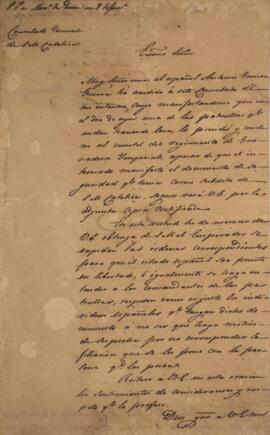 Consulado General
de S.M. Catolica
Exmo Señor
Muy Señor mio: el español Antonio Gomez
Guerra ha acudido a este Consulado de
mi interino cargo manifestandome que en
el dia de ayer una de las patrullas qe
andan haciendo leva, lo prendió y condu-
jo al cuartel del regimiento de Gra-
naderos Imperiales apesar de que el in-
teresado manifestó el documento de se-
guridad qe tenia como subdito de
S.M. Catolica, segun verá V.E. por la
adjunta copia certificada.
En esta virtud he de merecer de
V.E. obtenga de S.M. el Emperador se
expidan las órdenes correspondientes
para que el citado español sea puesto
en libertad, e igualmente se haga enten-
der a los comandantes de las pa-
trullas, respeten como es justo los indi-
viduos españoles qe tengan dicho do-
cumento a no ser que haya motivo
de sospecha por no corresponder la
filiacion que de la firma con la perso-
na qe los posea.
Reitero a V.E. en esta ocasion
los sentimientos de consideracion y res-
peto qe le profeso.
Dios gue a V.E. m